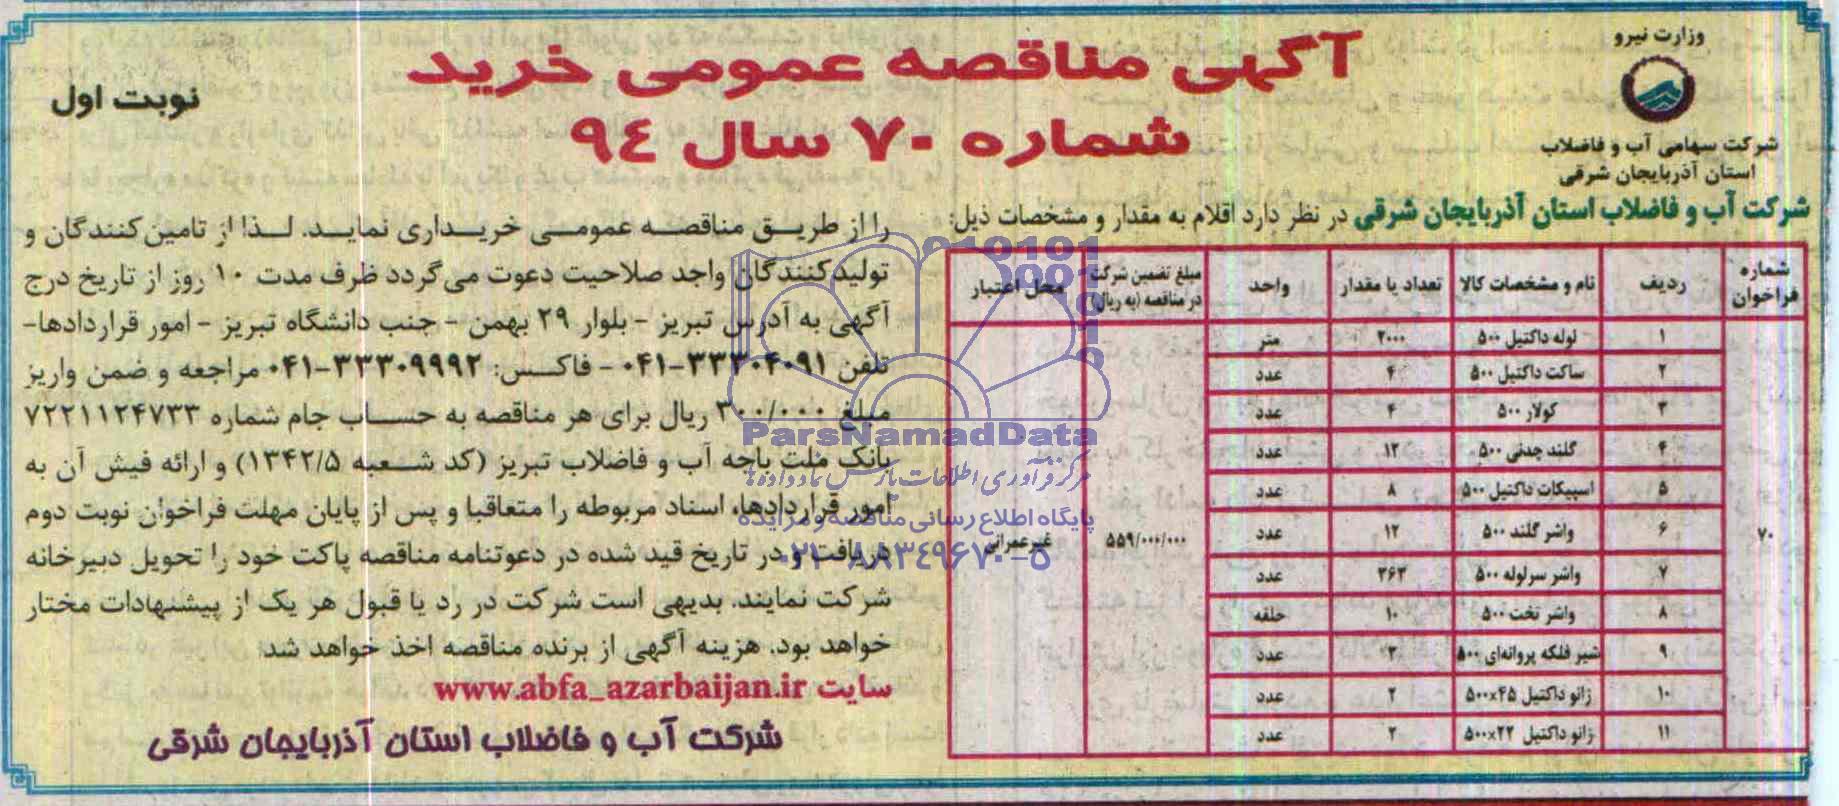 وزارت نیرو
شرکت سهامی آب و فاضلاب
استان آذربایجان شرقی
آگهی مناقصه عمومی خرید
شماره ۷۰ سال ۹۴
نوبت اول
شرکت آب و فاضلاب استان آذربایجان شرقی در نظر دارد اقلام به مقدار و مشخصات ذیل:
شماره فراخوان ردیف نام و مشخصات کالا تعداد یا مقدار واحد مبلغ تضمین شرکت در مناقصه (به ریال) محل اعتبار
۱ لوله داکتیل ۵۰۰ ۲۰۰۰ متر
۲ ساکت داکتیل ۵۰۰ ۴ عدد
۳ کولار ۵۰۰ ۴ عدد
۴ گلند چدنی ۵۰۰ ۱۲ عدد
۵ اسپیکات داکتیل ۵۰۰ ۸ عدد
۷۰ ۶ واشر گلند ۵۰۰ ۱۲ عدد ۵۵۹/۰۰۰/۰۰۰ غیرعمرانی
۷ واشر سرلوله ۵۰۰ ۳۶۳ عدد
۸ واشر تخت ۵۰۰ ۱۰ حلقه
۹ شیر فلکه پروانه‌ای ۵۰۰ ۲ عدد
۱۰ زانو داکتیل ۴۵×۵۰۰ ۲ عدد
۱۱ زانو داکتیل ۲۲×۵۰۰ ۲ عدد
را از طریق مناقصه عمومی خریداری نماید. لذا از تامین‌کنندگان و
تولیدکنندگان واجد صلاحیت دعوت می‌گردد ظرف مدت ۱۰ روز از تاریخ درج
آگهی به آدرس تبریز - بلوار ۲۹ بهمن - جنب دانشگاه تبریز - امور قراردادها-
تلفن ۳۳۳۰۴۰۹۱-۰۴۱ - فاکس: ۳۳۳۰۹۹۹۲-۰۴۱ مراجعه و ضمن واریز
مبلغ ۳۰۰/۰۰۰ ریال برای هر مناقصه به حساب جام شماره ۷۲۲۱۱۲۴۷۳۳
بانک ملت باجه آب و فاضلاب تبریز (کد شعبه ۱۳۴۲/۵) و ارائه فیش آن به
امور قراردادها، اسناد مربوطه را متعاقبا و پس از پایان مهلت فراخوان نوبت دوم
دریافت و در تاریخ قید شده در دعوتنامه مناقصه پاکت خود را تحویل دبیرخانه
شرکت نمایند. بدیهی است شرکت در رد یا قبول هر یک از پیشنهادات مختار
خواهد بود. هزینه آگهی از برنده مناقصه اخذ خواهد شد.
سایت www.abfa_azarbaijan.ir
شرکت آب و فاضلاب استان آذربایجان شرقی
ParsNamadData
مرکز فرآوری اطلاعات پارس نماد داده‌ها
پایگاه اطلاع رسانی مناقصه و مزایده
۰۲۱-۸۸۳۴۹۶۷۰-۵